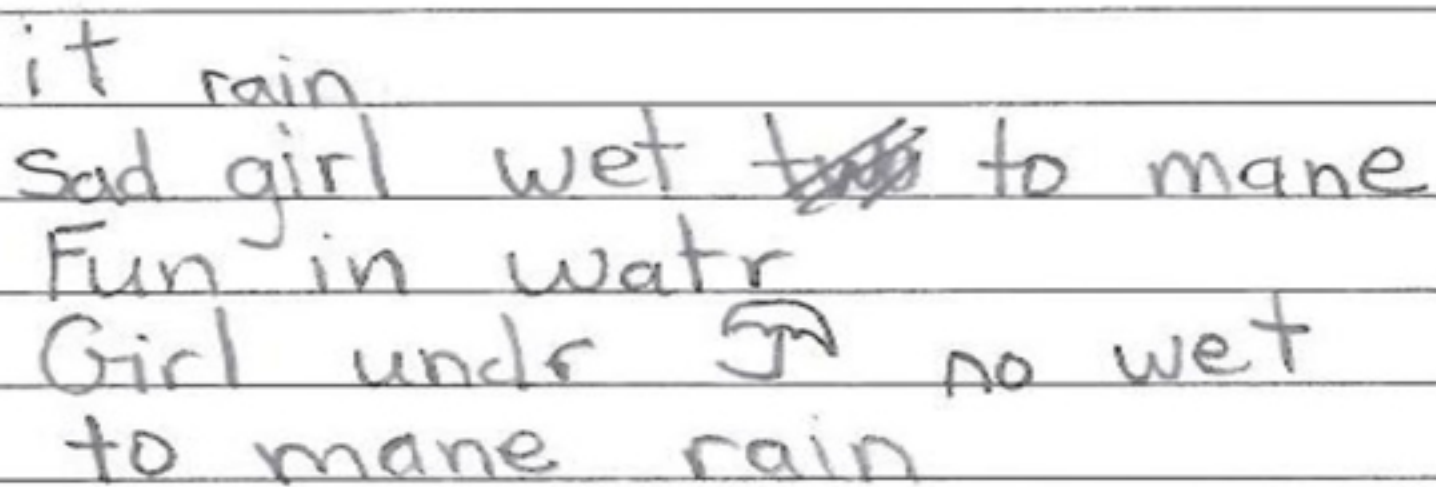 it rain
Sad girl wet to mane
Fun in watr
Girl undr no wet
to mane rain